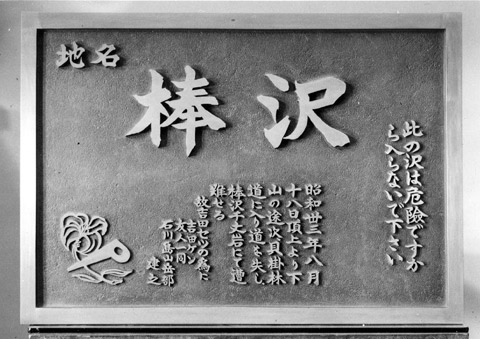 地名
沢棒
此の沢は危険ですか
ら入らないで下さい
昭和卅三年八月
十八日頂上より下
山の途次貝掛林
道に入り道を失し、
棒沢千丈岩にて遭
難せる
故吉田セツの為に
吉田ゲン
友人一同
石川島山岳部
建之